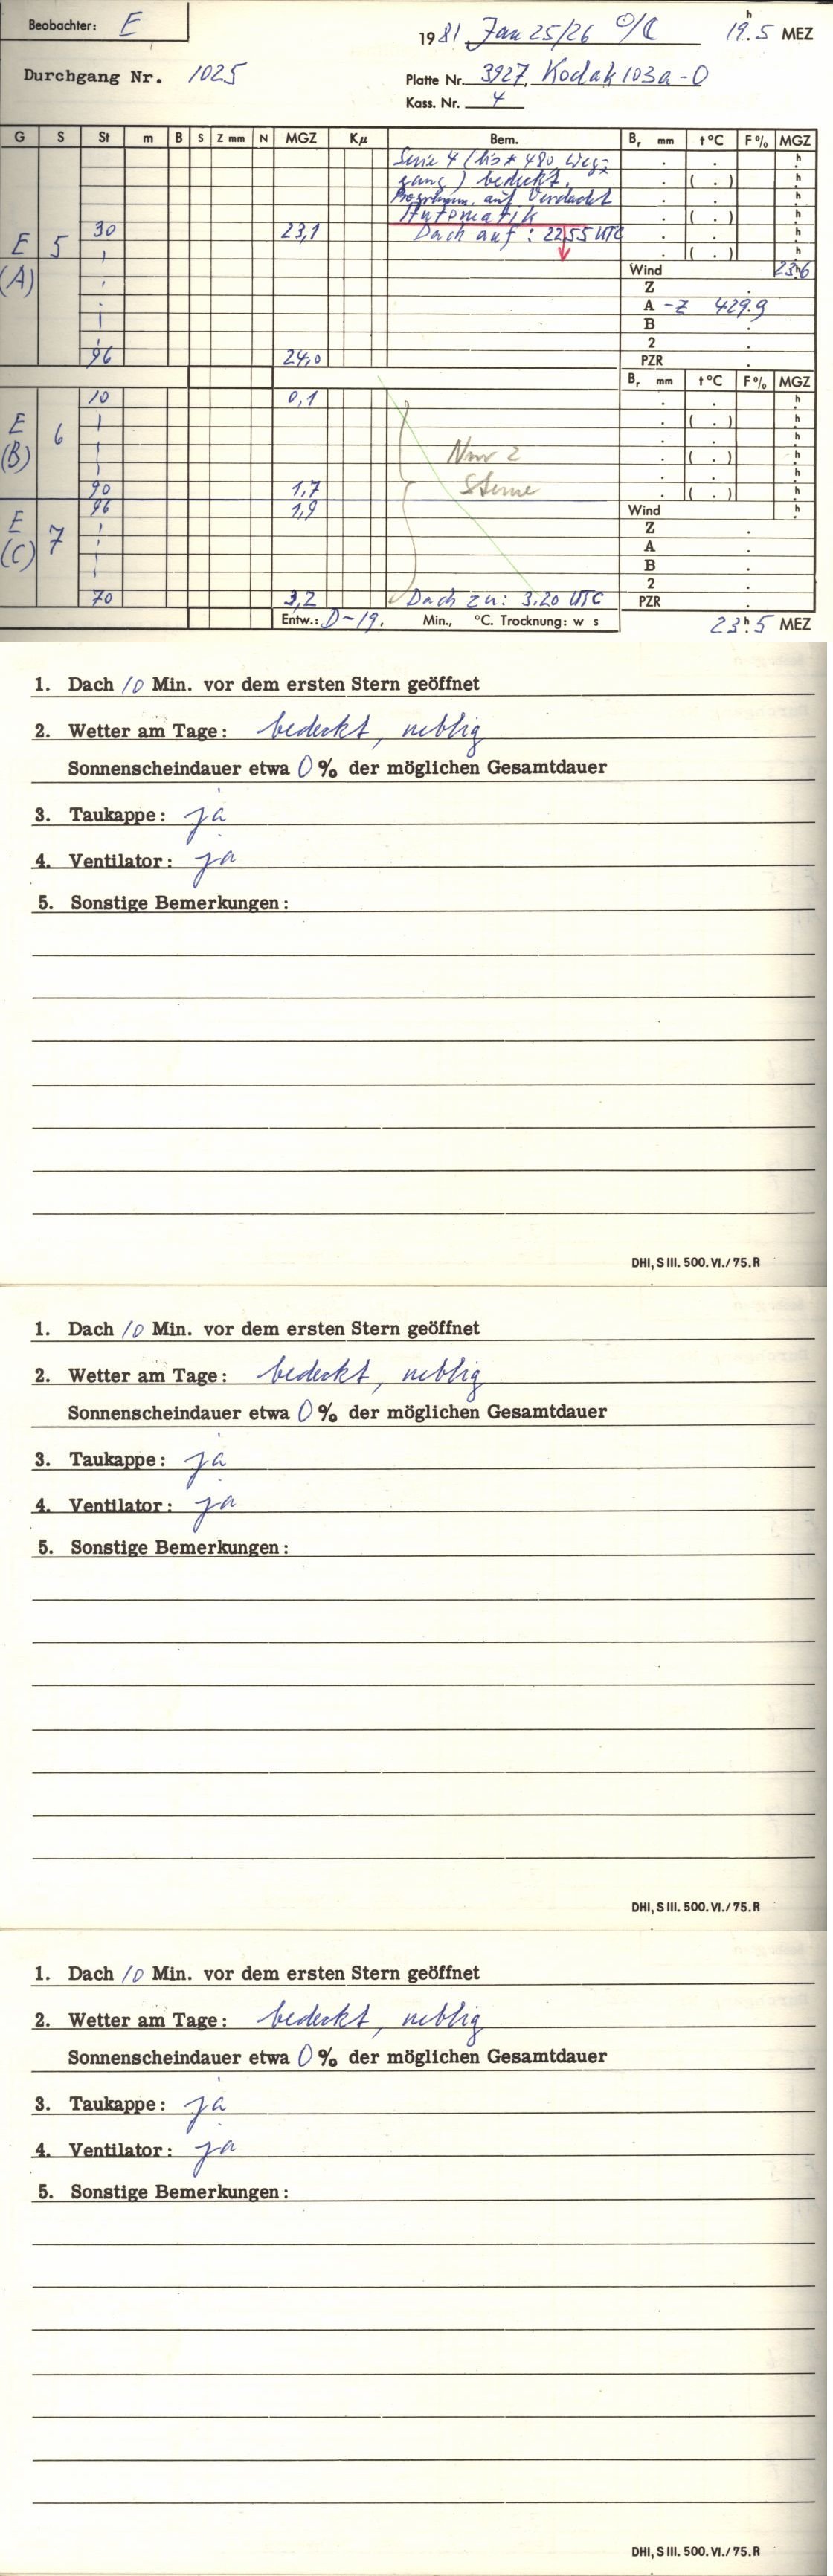 Beobachter: E
1981 Jan 25/26 ☉/☾ 19h.5 MEZ
Durchgang Nr. 1025
Platte Nr. 3927, Kodak 103a-O
Kass. Nr. 4
G S St m B S Z mm N MGZ Kμ Bem. Br mm t°C F% MGZ
Serie 4 (bis * 480
gang) bedeckt.
Programm. auf Verdacht
Automatik
30 23,1 Dach auf: 2255 UTC
E 5
(A)
Wind 23h6
Z
A -Z 429.9
B
2
96 24,0 PZR
Br mm t°C F% MGZ
10 0,1
E 6
(B)
Nur 2
Sterne
90 1,7
96 1,9 Wind
E 7
(C)
Z
A
B
2
70 3,2 Dach zu: 3.20 UTC PZR
Entw.: D-19. Min., °C. Trocknung: w s 23h.5 MEZ
1. Dach 10 Min. vor dem ersten Stern geöffnet
2. Wetter am Tage: bedeckt, neblig
Sonnenscheindauer etwa 0% der möglichen Gesamtdauer
3. Taukappe: ja
4. Ventilator: ja
5. Sonstige Bemerkungen:
DHI, S III. 500. VI./75. R
1. Dach 10 Min. vor dem ersten Stern geöffnet
2. Wetter am Tage: bedeckt, neblig
Sonnenscheindauer etwa 0% der möglichen Gesamtdauer
3. Taukappe: ja
4. Ventilator: ja
5. Sonstige Bemerkungen:
DHI, S III. 500. VI./75. R
1. Dach 10 Min. vor dem ersten Stern geöffnet
2. Wetter am Tage: bedeckt, neblig
Sonnenscheindauer etwa 0% der möglichen Gesamtdauer
3. Taukappe: ja
4. Ventilator: ja
5. Sonstige Bemerkungen:
DHI, S III. 500. VI./75. R